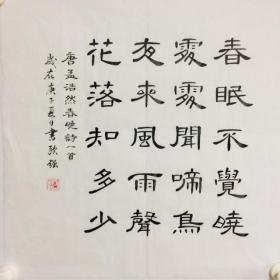 春眠不覺曉
處處聞啼鳥
夜來風雨聲
花落知多少
唐孟浩然春曉詩一首
歲在庚子夏月書